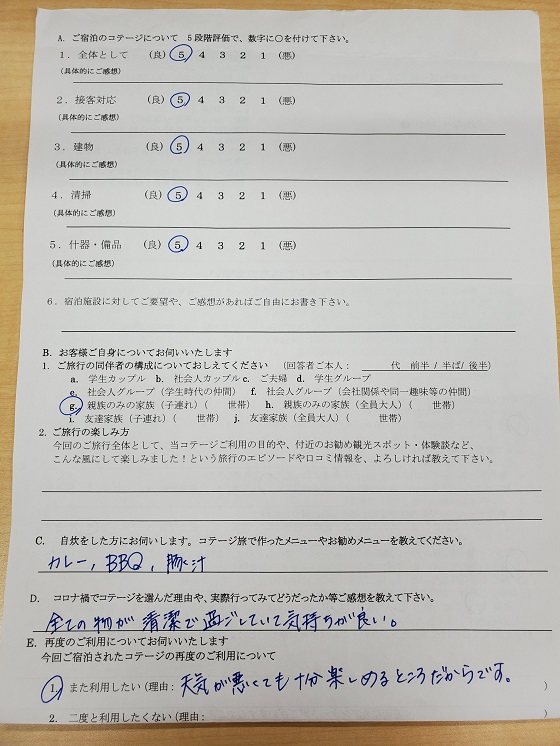 A. ご宿泊のコテージについて 5段階評価で、数字に○を付けて下さい。
1. 全体として (良) 5 4 3 2 1 (悪)
(具体的にご感想)
2. 接客対応 (良) 5 4 3 2 1 (悪)
(具体的にご感想)
3. 建物 (良) 5 4 3 2 1 (悪)
(具体的にご感想)
4. 清掃 (良) 5 4 3 2 1 (悪)
(具体的にご感想)
5. 什器・備品 (良) 5 4 3 2 1 (悪)
(具体的にご感想)
6. 宿泊施設に対してご要望や、ご感想があればご自由にお書き下さい。
B. お客様ご自身についてお伺いいたします
1. ご旅行の同伴者の構成についておしえてください (回答者ご本人: 代 前半 / 半ば / 後半)
a. 学生カップル b. 社会人カップル c. ご夫婦 d. 学生グループ
e. 社会人グループ (学生時代の仲間) f. 社会人グループ (会社関係や同一趣味等の仲間)
g. 親族のみの家族 (子連れ) ( 世帯) h. 親族のみの家族 (全員大人) ( 世帯)
i. 友達家族 (子連れ) ( 世帯) j. 友達家族 (全員大人) ( 世帯)
2. ご旅行の楽しみ方
今回のご旅行全体として、当コテージご利用の目的や、付近のお勧め観光スポット・体験談など、
こんな風にして楽しみました!という旅行のエピソードや口コミ情報を、よろしければ教えて下さい。
C. 自炊をした方にお伺いします。コテージ旅で作ったメニューやお勧めメニューを教えてください。
カレー, BBQ, 豚汁
D. コロナ禍でコテージを選んだ理由や、実際行ってみてどうだったか等ご感想を教えて下さい。
全ての物が清潔で過ごしていて気持ちが良い。
E. 再度のご利用についてお伺いいたします
今回ご宿泊されたコテージの再度のご利用について
1. また利用したい (理由: 天気が悪くても十分楽しめるところだからです。 )
2. 二度と利用したくない (理由: )